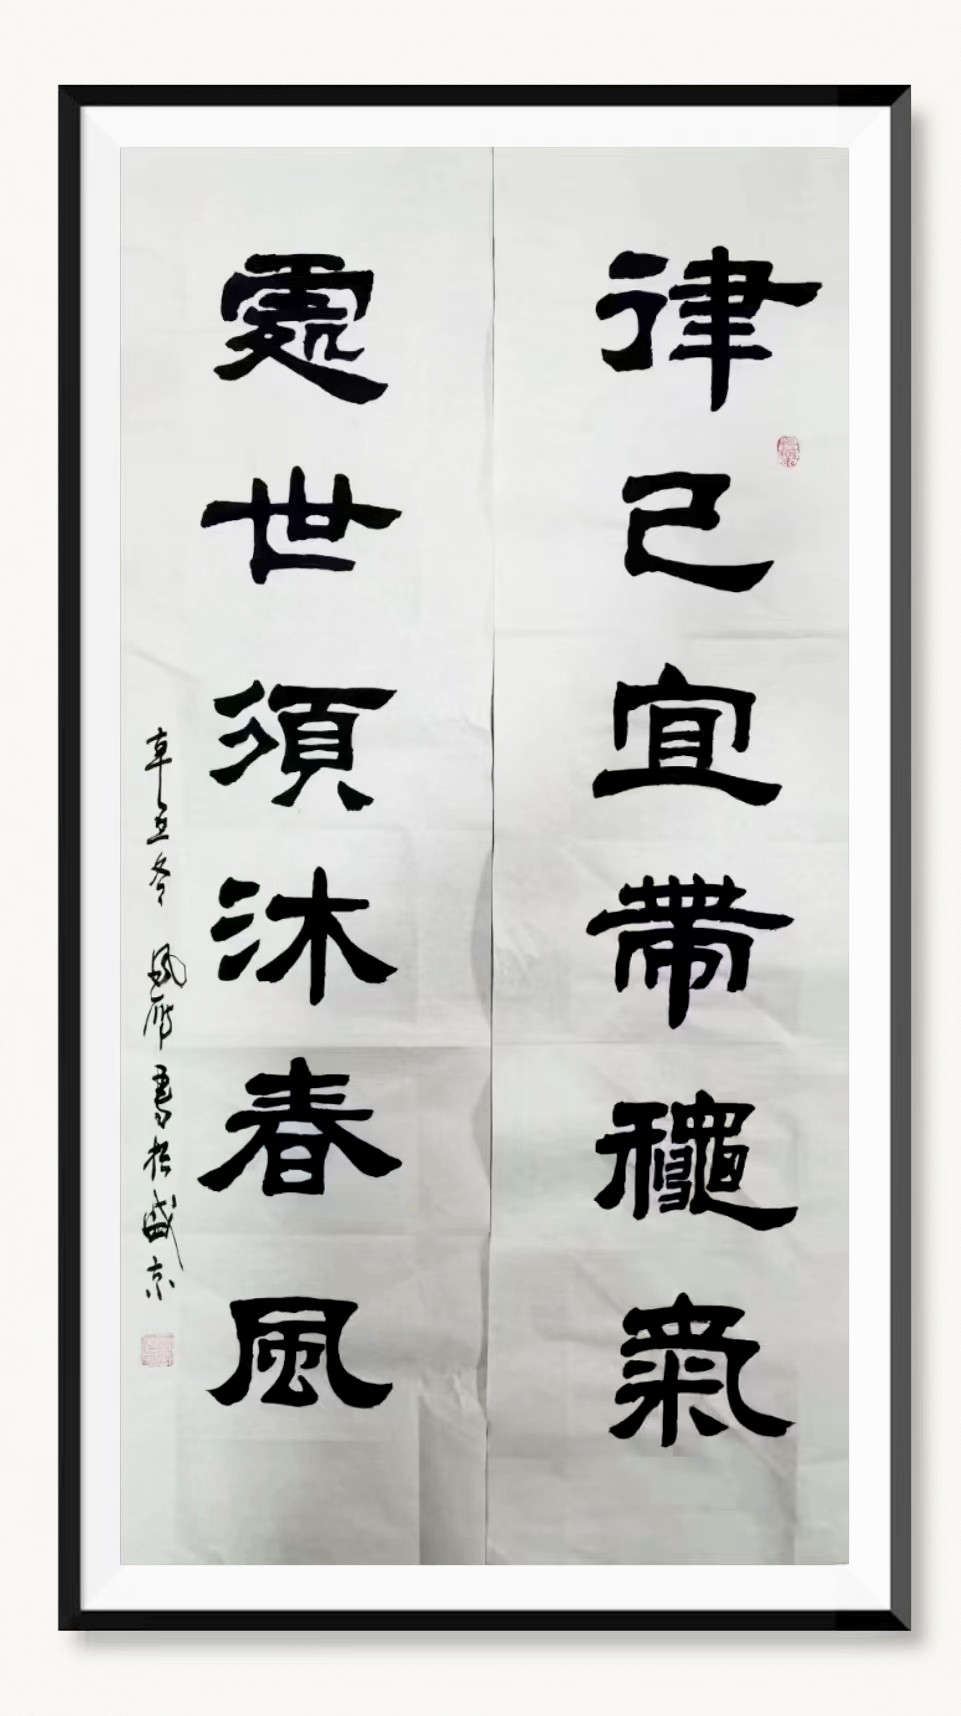 律己宜帶龝氣
處世須沐春風
辛丑冬 書於盛京